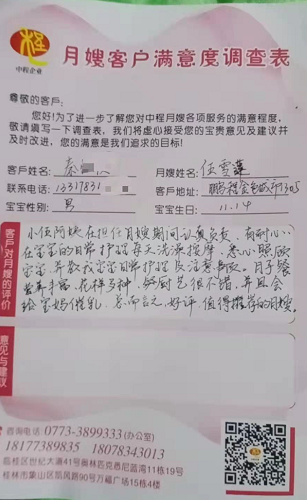 中程企业
月嫂客户满意度调查表
尊敬的客户:
您好!为了进一步了解您对中程月嫂各项服务的满意程度,
敬请填写一下调查表,我们将虚心接受您的宝贵意见及建议并
及时改进,您的满意是我们追求的目标!
客户姓名: 秦
月嫂姓名: 伍雪莲
联系电话: 13317831
客户地址:
宝宝性别: 男
宝宝生日: 11.14
客户对月嫂的评价
小伍阿姨在担任月嫂期间认真负责、有耐心
在宝宝的日常护理每天洗澡按摩、悉心照顾
宝宝,并教我宝宝日常护理及注意事项。月子餐
营养丰富、花样多种,的厨艺很不错,并且会
给宝妈催乳。总而言之,好评,值得推荐的月嫂
意见与建议
咨询电话: 0773-3899333 (办公室)
18177389835 18078343013
临桂区世纪大道41号奥林匹克悉尼蓝湾11栋19号
桂林市象山区凯风路90号万福广场15栋4楼